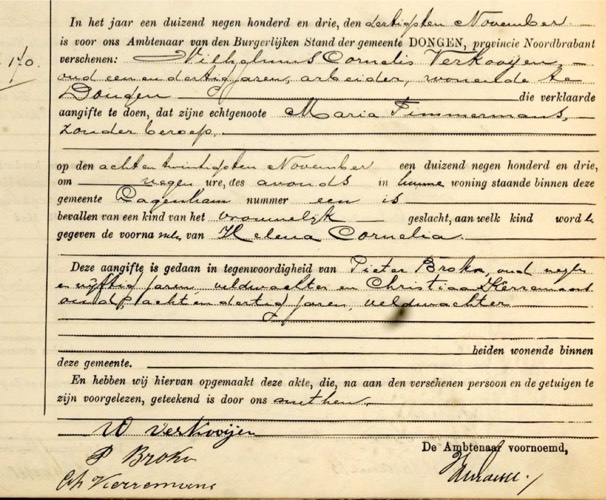 170.
In het jaar een duizend negen honderd en drie, den dertigsten November
is voor ons Ambtenaar van den Burgerlijken Stand der gemeente DONGEN, provincie Noordbrabant
verschenen: Wilhelmus Cornelis Verkooijen,
oud een en dertig jaren, arbeider, wonende te
Dongen die verklaarde
aangifte te doen, dat zijne echtgenoote Maria Timmermans,
zonder beroep,
op den acht en twintigsten November een duizend negen honderd en drie,
om negen ure, des avonds in hunne woning staande binnen deze
gemeente nummer een is
bevallen van een kind van het vrouwelijk geslacht, aan welk kind word
gegeven de voorna van Helena Cornelia.
Deze aangifte is gedaan in tegenwoordigheid van Pieter Broka, oud negen
en vijftig jaren, veldwachter en Christiaan
oud acht en dertig jaren, veldwachter
beiden wonende binnen
deze gemeente.
En hebben wij hiervan opgemaakt deze akte, die, na aan den verschenen persoon en de getuigen te
zijn voorgelezen, geteekend is door ons met hen.
W Verkooijen
P Broka
De Ambtenaar voornoemd,